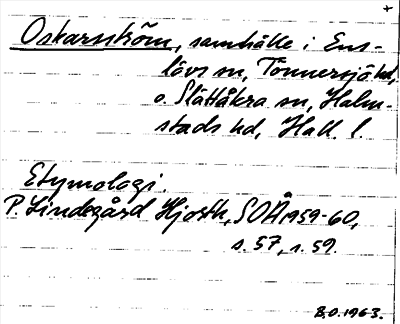 +
Oskarström, samhälle i Ens-
lövs sn, Tönnersjö hd,
o. Slättåkra sn, Halm-
stads hd, Hall. l.
Etymologi.
P. Lindegård Hjorth, SOÅ 1959-60,
s. 57, s. 59.
B.O. 1963.